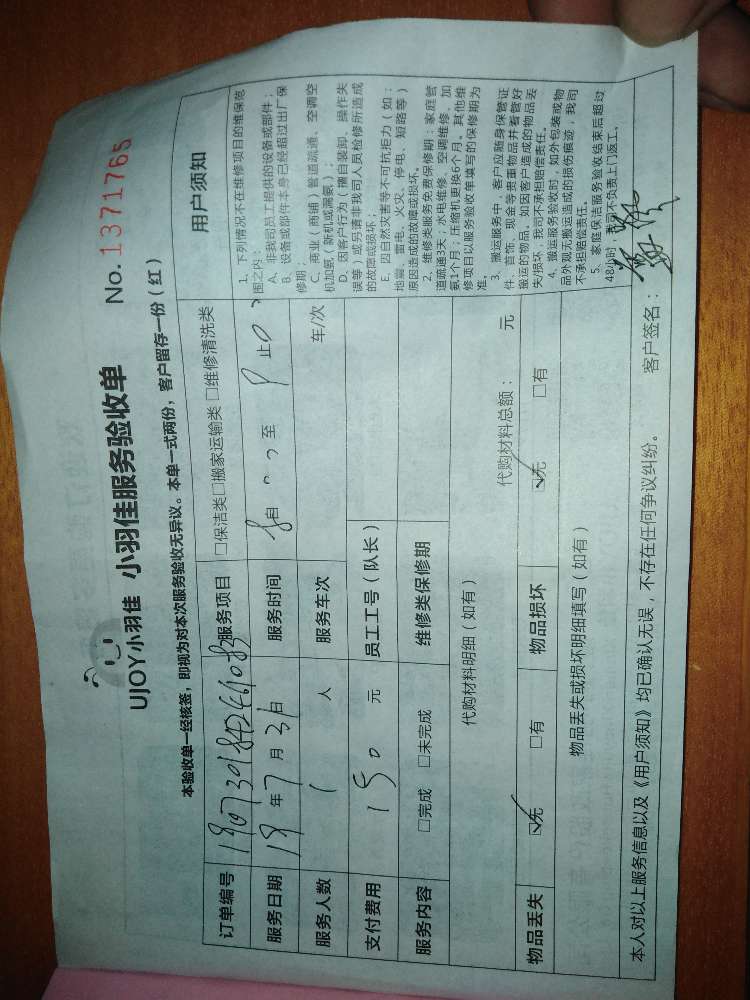 UJOY小羽佳 小羽佳服务验收单 No. 1371765
本验收单一经核签，即视为对本次服务验收无异议。本单一式两份，客户留存一份（红）
订单编号 服务项目 □保洁类□搬家运输类□维修清洗类
服务日期 19年7月31日 服务时间 8自 至 9止0
服务人数 1 人 服务车次 车/次
支付费用 150 元 员工工号（队长）
服务内容 □完成 □未完成 维修类保修期
代购材料明细（如有） 代购材料总额： 元
物品丢失 ☑无 □有 物品损坏 ☑无 □有
物品丢失或损坏明细填写（如有）
用户须知
1、下列情况不在维修项目的维保范
围之内：
A、非我司员工提供的设备或部件；
B、设备或部件本身已经超过出厂保
修期；
C、商业（商铺）管道疏通、空调空
机加氨（新机或漏氨）；
D、因客户行为（擅自装卸、操作失
误等）或另请非我司人员检修所造成
的故障或损坏；
E、因自然灾害等不可抗拒力（如：
地震、雷电、火灾、停电、短路等）
原因造成的故障或损坏。
2、维修类服务免费保修期：家庭管
道疏通3天；水电维修、空调维修、加
氨1个月；压缩机更换6个月。其他维
修项目以服务验收单填写的保修期为
准。
3、搬运服务中，客户应随身保管证
件、首饰、现金等贵重物品并看管好
搬运的物品。如因客户造成的物品丢
失/损坏，我司不承担赔偿责任。
4、搬运服务验收时，如外包装或物
品外观无搬运造成的损伤痕迹，我司
不承担赔偿责任。
5、家庭保洁服务验收结束后超过
48小时，我司不负责上门返工。
本人对以上服务信息以及《用户须知》均已确认无误，不存在任何争议纠纷。 客户签名：